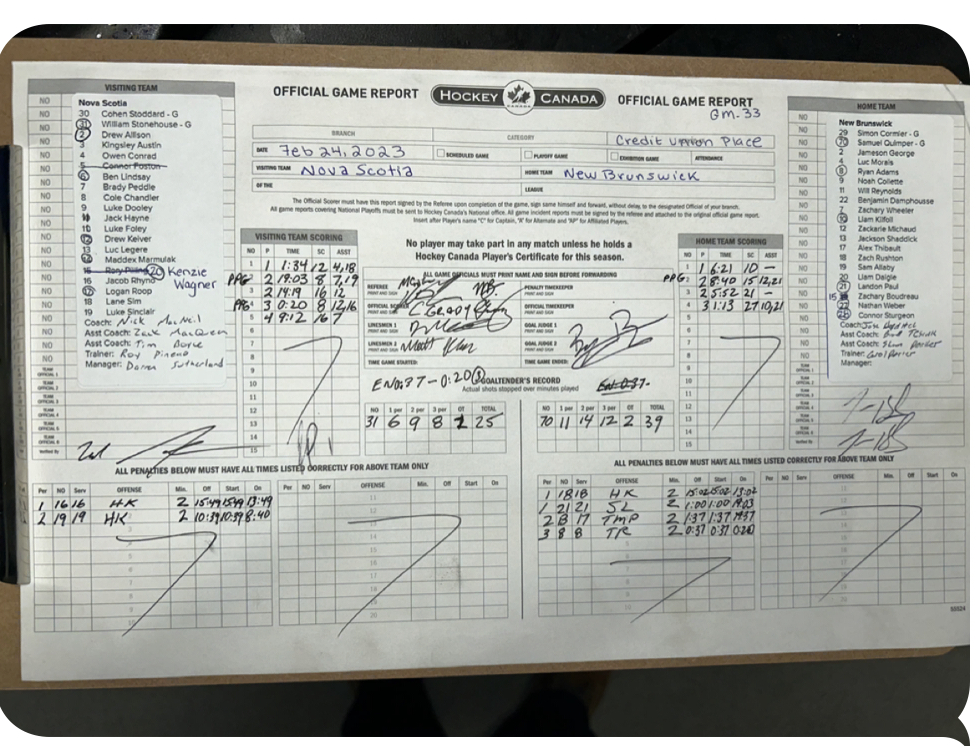 VISITING TEAM
Nova Scotia
30 Cohen Stoddard - G
31 William Stonehouse - G
2 Drew Allison
3 Kingsley Austin
4 Owen Conrad
5 Connor Foston
6 Ben Lindsay
7 Brady Peddle
8 Cole Chandler
9 Luke Dooley
Jack Hayne
Luke Foley
12 Drew Keiver
13 Luc Legere
Maddex Marmulak
Rory Pilling 20 Kenzie Wagner
16 Jacob Rhyno
17 Logan Roop
18 Lane Sim
19 Luke Sinclair
Coach: Nick MacNeil
Asst Coach: Zack MacQueen
Asst Coach: Tim Boyce
Trainer: Roy Pineo
Manager: Darren Sutherland
OFFICIAL GAME REPORT
HOCKEY CANADA
OFFICIAL GAME REPORT
Gm-33
BRANCH
CATEGORY
Credit Union Place
DATE Feb 24, 2023
SCHEDULED GAME
PLAYOFF GAME
EXHIBITION GAME
ATTENDANCE
VISITING TEAM Nova Scotia
HOME TEAM New Brunswick
OF THE
LEAGUE
The Official Scorer must have this report signed by the Referee upon completion of the game, sign same himself and forward, without delay, to the designated Official of your branch.
All game reports covering National Playoffs must be sent to Hockey Canada's National office. All game incident reports must be signed by the referee and attached to the original official game report.
Insert after Player's name "C" for Captain, "A" for Alternate and "AP" for Affiliated Players.
VISITING TEAM SCORING
NO P TIME SC ASST
1 1 1:34 12 4,18
PPG 2 2 19:03 8 7,19
3 2 14:19 16 12
PPG 4 3 0:20 8 12,16
5 4 9:12 16 7
6
7
8
9
10
11
12
13
14
15
No player may take part in any match unless he holds a
Hockey Canada Player's Certificate for this season.
ALL GAME OFFICIALS MUST PRINT NAME AND SIGN BEFORE FORWARDING
REFEREE
PRINT AND SIGN
PENALTY TIMEKEEPER
PRINT AND SIGN
OFFICIAL SCORER
PRINT AND SIGN
OFFICIAL TIMEKEEPER
PRINT AND SIGN
LINESMEN 1
PRINT AND SIGN
GOAL JUDGE 1
PRINT AND SIGN
LINESMEN 2
PRINT AND SIGN
GOAL JUDGE 2
PRINT AND SIGN
TIME GAME STARTED:
TIME GAME ENDED:
EN 0:37-0:20
GOALTENDER'S RECORD
Actual shots stopped over minutes played
NO 1 per 2 per 3 per OT TOTAL
31 6 9 8 2 25
NO 1 per 2 per 3 per OT TOTAL
70 11 14 12 2 39
HOME TEAM SCORING
NO P TIME SC ASST
1 1 6:21 10 -
PPG 2 2 8:40 15 12,21
3 2 5:52 21 -
4 3 1:13 27 10,21
5
6
7
8
9
10
11
12
13
14
15
HOME TEAM
New Brunswick
29 Simon Cormier - G
70 Samuel Quimper - G
2 Jameson George
4 Luc Morais
8 Ryan Adams
9 Noah Collette
11 Will Reynolds
22 Benjamin Damphousse
7 Zachary Wheeler
10 Liam Kilfoil
12 Zackarie Michaud
13 Jackson Shaddick
17 Alex Thibault
18 Zach Rushton
19 Sam Allaby
20 Liam Daigle
21 Landon Paul
15 Zachary Boudreau
27 Nathan Weber
Connor Sturgeon
Coach:
Asst Coach:
Asst Coach:
Trainer:
Manager:
ALL PENALTIES BELOW MUST HAVE ALL TIMES LISTED CORRECTLY FOR ABOVE TEAM ONLY
Per NO Serv OFFENSE Min. Off Start On
1 16 16 HK 2 15:49 15:49 13:49
2 19 19 HK 2 10:39 10:39 8:40
Per NO Serv OFFENSE Min. Off Start On
ALL PENALTIES BELOW MUST HAVE ALL TIMES LISTED CORRECTLY FOR ABOVE TEAM ONLY
Per NO Serv OFFENSE Min. Off Start On
1 18 18 HK 2 15:02 15:02 13:02
1 21 21 SL 2 1:00 1:00 19:03
2 B 17 TMP 2 1:37 1:37 19:37
3 8 8 TR 2 0:37 0:37 0:20
Per NO Serv OFFENSE Min. Off Start On